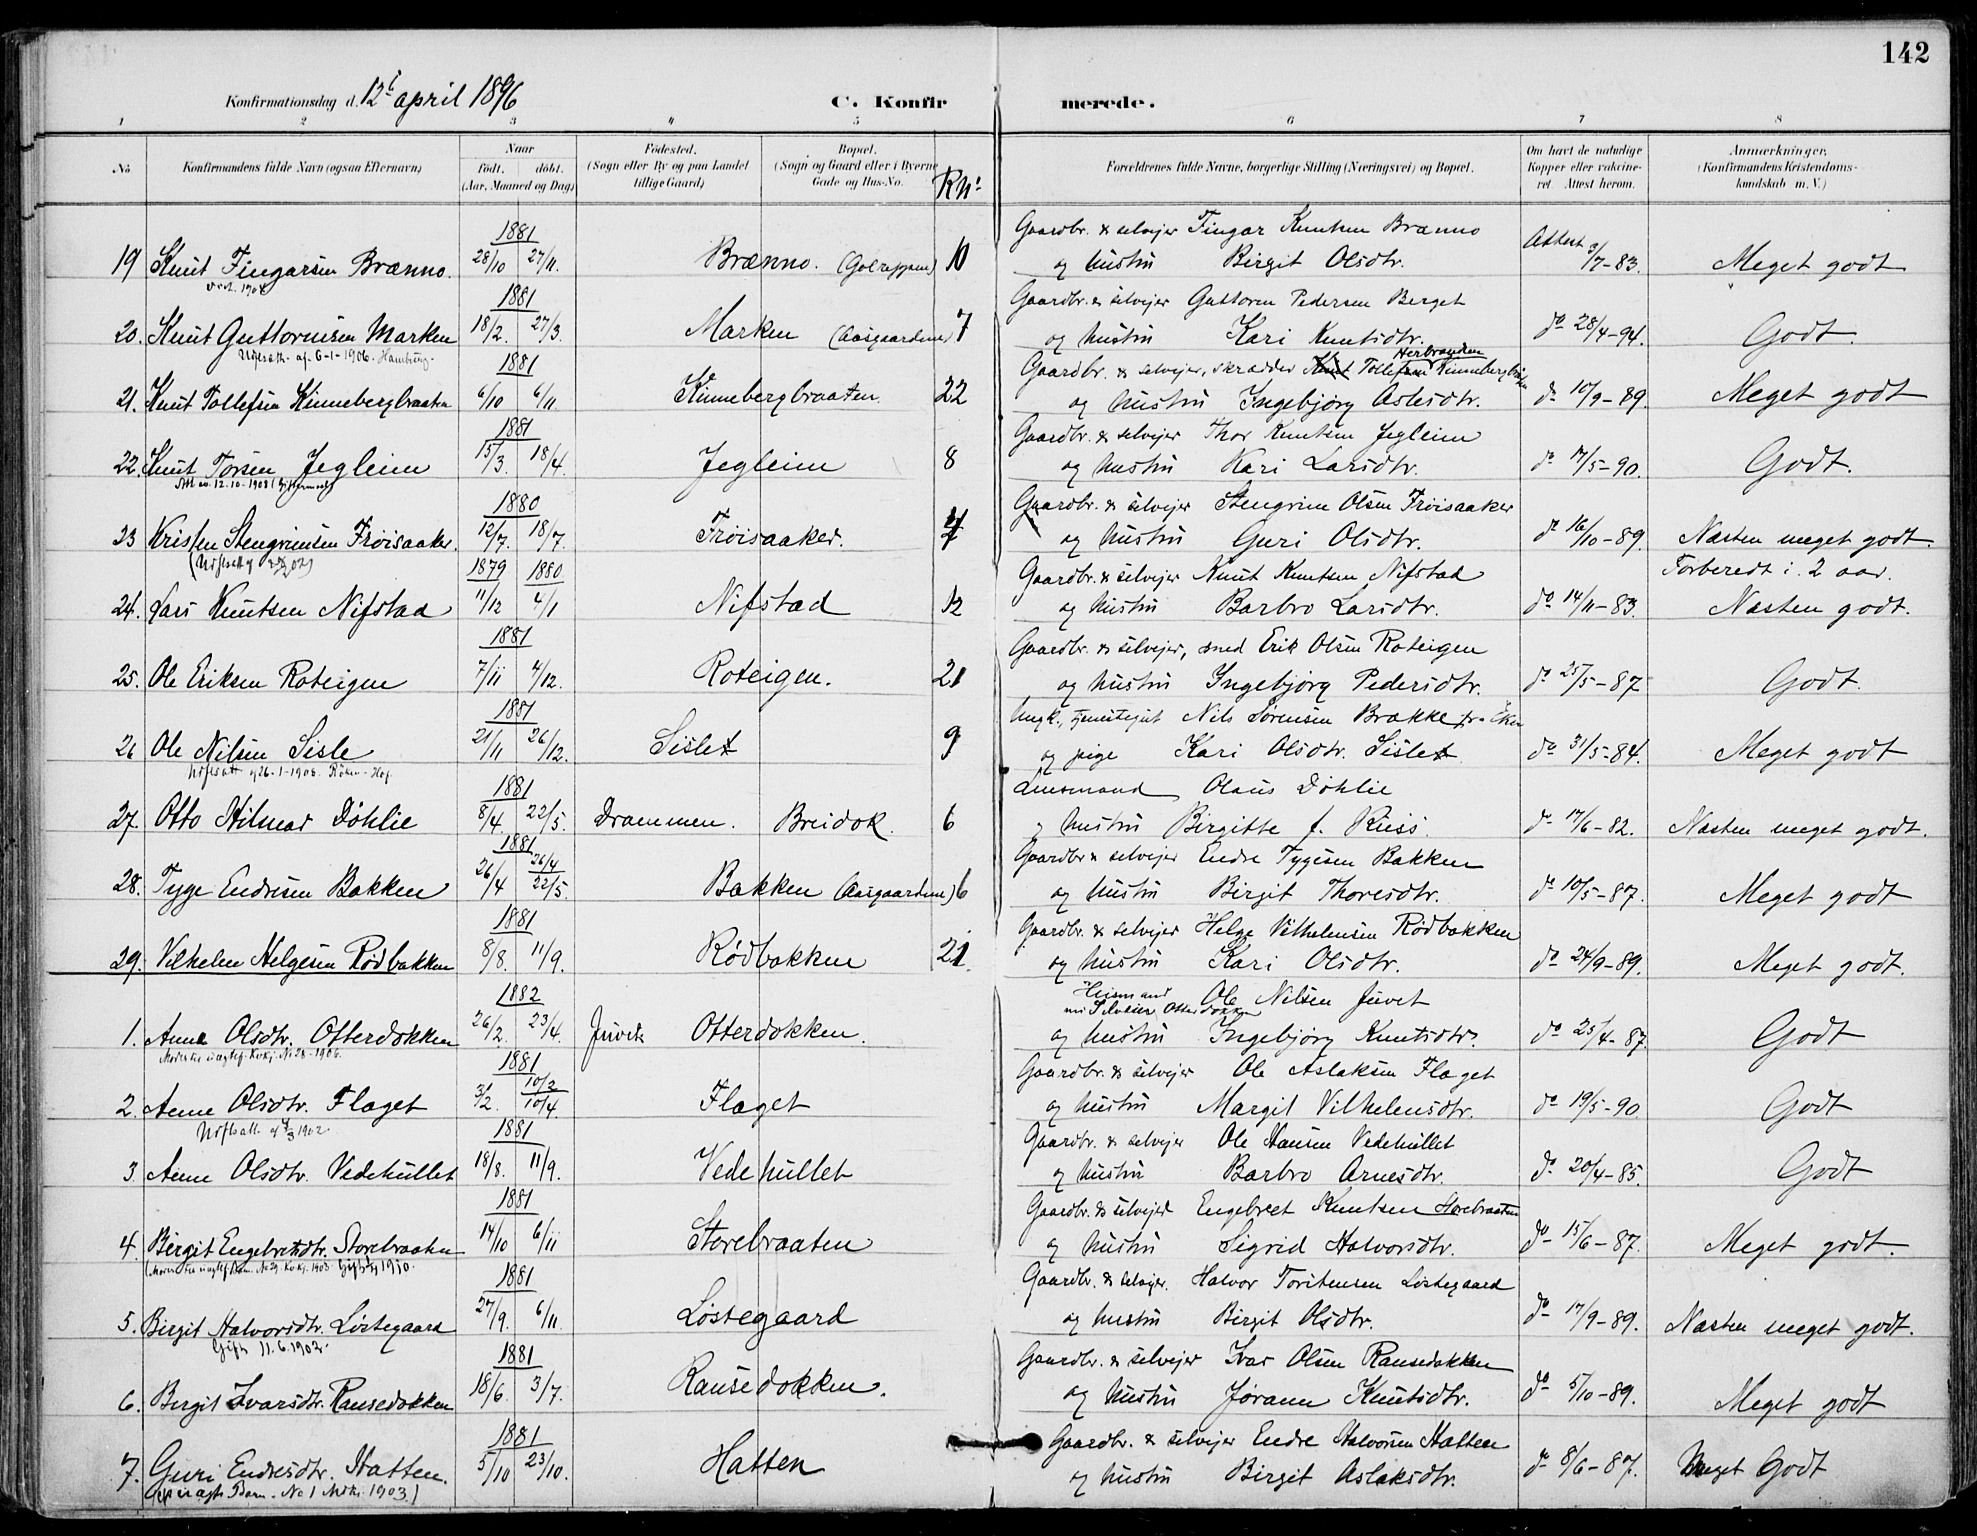 142
Konfirmationsdag d. 12t april 1896
C. Konfirmerede.
1 2 3 4 5 6 7 8
No Konfirmandens fulde Navn (ogsaa Efternavn) Naar født. døbt. (Aar, Maaned og Dag) Fødested. (Sogn eller By og paa Landet tillige Gaard) Bopæl. (Sogn og Gaard eller i Byerne Gade og Hus-No. RN: Forældrenes fulde Navne, borgerlige Stilling (Næringsvei) og Bopæl. Om havt de naturlige Kopper eller vakcineret. Attest herom. Anmærkninger, (Konfirmandens Kristendomskundskab m. V.)
1881 Gaardbr. & selvejer Fingar Knutsen Brænno
19 Knut Fingarsen Brænno. 28/10 27/11. Brænno. (Golreppen) 10 og hustru Birgit Olsdtr. Attest 3/7-83. Meget godt
1881 Gaardbr. & selvejer Guttorm Pedersen Berget
20. Knut Guttormsen Marken 18/2. 27/3. Marken (Aasgaardene) 7 og hustru Kari Knutsdtr. do 28/4-94. Godt.
Udflsatt. af 6-1-1906. Hamburg.
1881 Gaardbr. & selvejer, skrædder Tollef Herbrandsen Kinnebergbråten
21. Knut Tollefsen Kinnebergbraaten 6/10 6/11 Kinnebergbraaten. 22 og hustru Ingebjørg Aslesdtr. do 10/9-89. Meget godt
1881 Gaardbr. & selvejer Thor Knutsen Jegleim
22. Knut Torsen Jegleim 15/3. 18/4. Jegleim 8 og hustru Kari Larsdtr. do 17/5-90. Godt.
12.10-1908
1880 Gaardbr. & selvejer Stengrim Olsen Frøisaaker
23 Kristen Stengrimsen Frøisaaker. 12/7. 18/7. Frøisaaker. 4 og hustru Guri Olsdtr. do 16/10-89. Næsten meget godt.
1879 1880 Gaardbr. & selvejer Knut Knutsen Nifstad Forberedt i 2 aar.
24. Lars Knutsen Nifstad 11/12 4/1 Nifstad 12 og hustru Barbro Larsdtr. do 14/11-83. Næsten godt.
1881 Gaardbr. & selvejer, smed Erik Olsen Roteigen
25. Ole Eriksen Roteigen 7/11 4/12. Roteigen. 21 og hustru Ingebjørg Pedersdtr. do 25/5-87 Godt.
1881 Ungk., tjenstegut Nils Sørensen Brække fr. Eker
26 Ole Nilsen Sisle 21/11 26/12. Sislet 9 og pige Kari Olsdtr. Sislet. do 31/5-84. Meget godt
Udflsatt. 26-1-1906. Røken-Hof.
1881 Lensmand Olaus Døhlie
27. Otto Hilmar Døhlie 8/4. 22/5. Drammen. Breidok. 6 og hustru Birgitte f. Kuss. do 17/6-82. Næsten meget godt.
1881 Gaardbr & selvejer Endre Tygesen Bakken
28. Tyge Endresen Bakken 26/4 26/4 22/5. Bakken (Aasgaardene) 6 og hustru Birgit Thoresdtr. do 10/5-87. Meget godt
1881 Gaardbr. & selvejer Helge Vilhelmsen Rødbakken
29. Vilhelm Helgesen Rødbakken 8/8. 11/9. Rødbakken 21. og hustru Kari Olsdtr. do 24/9-89. Meget godt.
1882 Heismand Ole Nilsen Juvet
nu Selveier Otterdokken
1. Anne Olsdtr. Otterdokken 26/2. 23/4. Juvet Otterdokken. og hustru Ingebjørg Knutsdtr. do 25/4-87. Godt
1881 Gaardbr. & selvejer Ole Aslaksen Flaget
2. Anne Olsdtr. Flaget 3/2. 10/2 10/4 Flaget og hustru Margit Vilhelmsdtr. do 19/5-90 Godt
Udflsatt. 1902.
1881 Gaardbr. & selvejer Ole Hansen Vedehullet
3. Anne Olsdtr. Vedehullet 18/8. 11/9. Vedehullet og hustru Barbro Arnesdtr. do 20/4-85. Godt
1881 Gaardbr. & selvejer Engebret Knutsen Storebraaten
4. Birgit Engebretsdtr. Storebraaten 14/10 6/11 Storebraaten og hustru Sigrid Halvorsdtr. do 15/6-87. Meget godt.
Gift 1910.
1881 Gaardbr. & selvejer. Halvor Torstensen Løstegaard
5. Birgit Halvorsdtr. Løstegaard 27/9. 6/11. Løstegaard og hustru Birgit Olsdtr. do 17/9-89. Næsten meget godt.
Gift 11.6.1902.
1881 Gaardbr. & selvejer Ivar Olsen Ransedokken
6. Birgit Ivarsdtr. Ransedokken 18/6. 3/7. Ransedokken. og hustru Jørann Knutsdtr. do 5/10-89. Meget godt
1881 Gaardbr. & selvejer Endre Halvorsen Hatten
7. Guri Endresdtr. Hatten. 5/10 23/10. Hatten og hustru Birgit Aslaksdtr. do 8/6-87. Meget Godt
Barn. No 1 1903.)